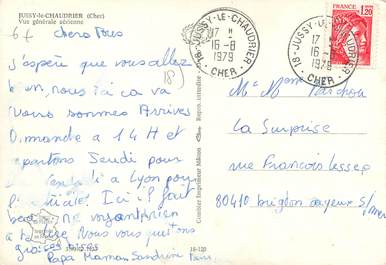 JUSSY-le-CHAUDRIER (Cher)
Vue générale aérienne
6+
Chers Tous
J'espère que vous allez
bien, nous ici ça va
Nous sommes Arrivés
Dimanche a 14 H et
partons Jeudi pour
a Lyon pour
Ici il fait
beau ne
a Nous vous quittons
grosses bises
Papa Maman Sandrine
18
18 - JUSSY-LE-CHAUDRIER
17 H
16-8
1979
CHER
18 - JUSSY-LE-CHAUDRIER
17 H
16-8
1979
CHER
FRANCE
1,20
Combier Imprimeur Mâcon
18-120
Mr Mme
La Surprise
rue François Lessep
80410 brighton cayeux S/mer